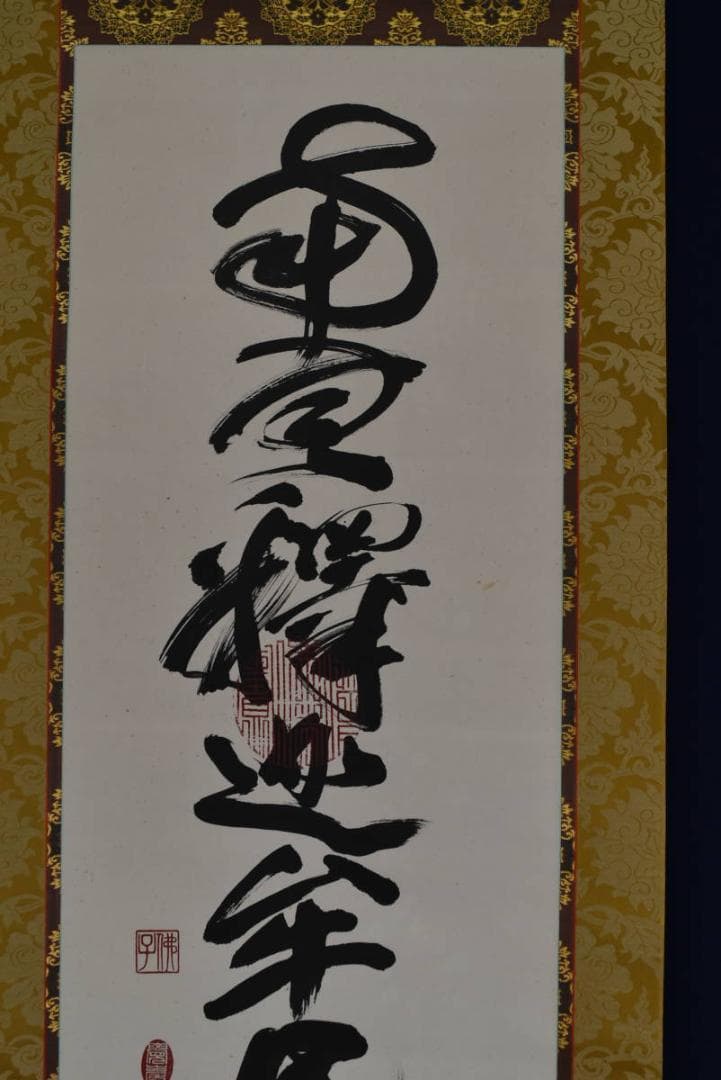 南無釋迦牟尼
佛子